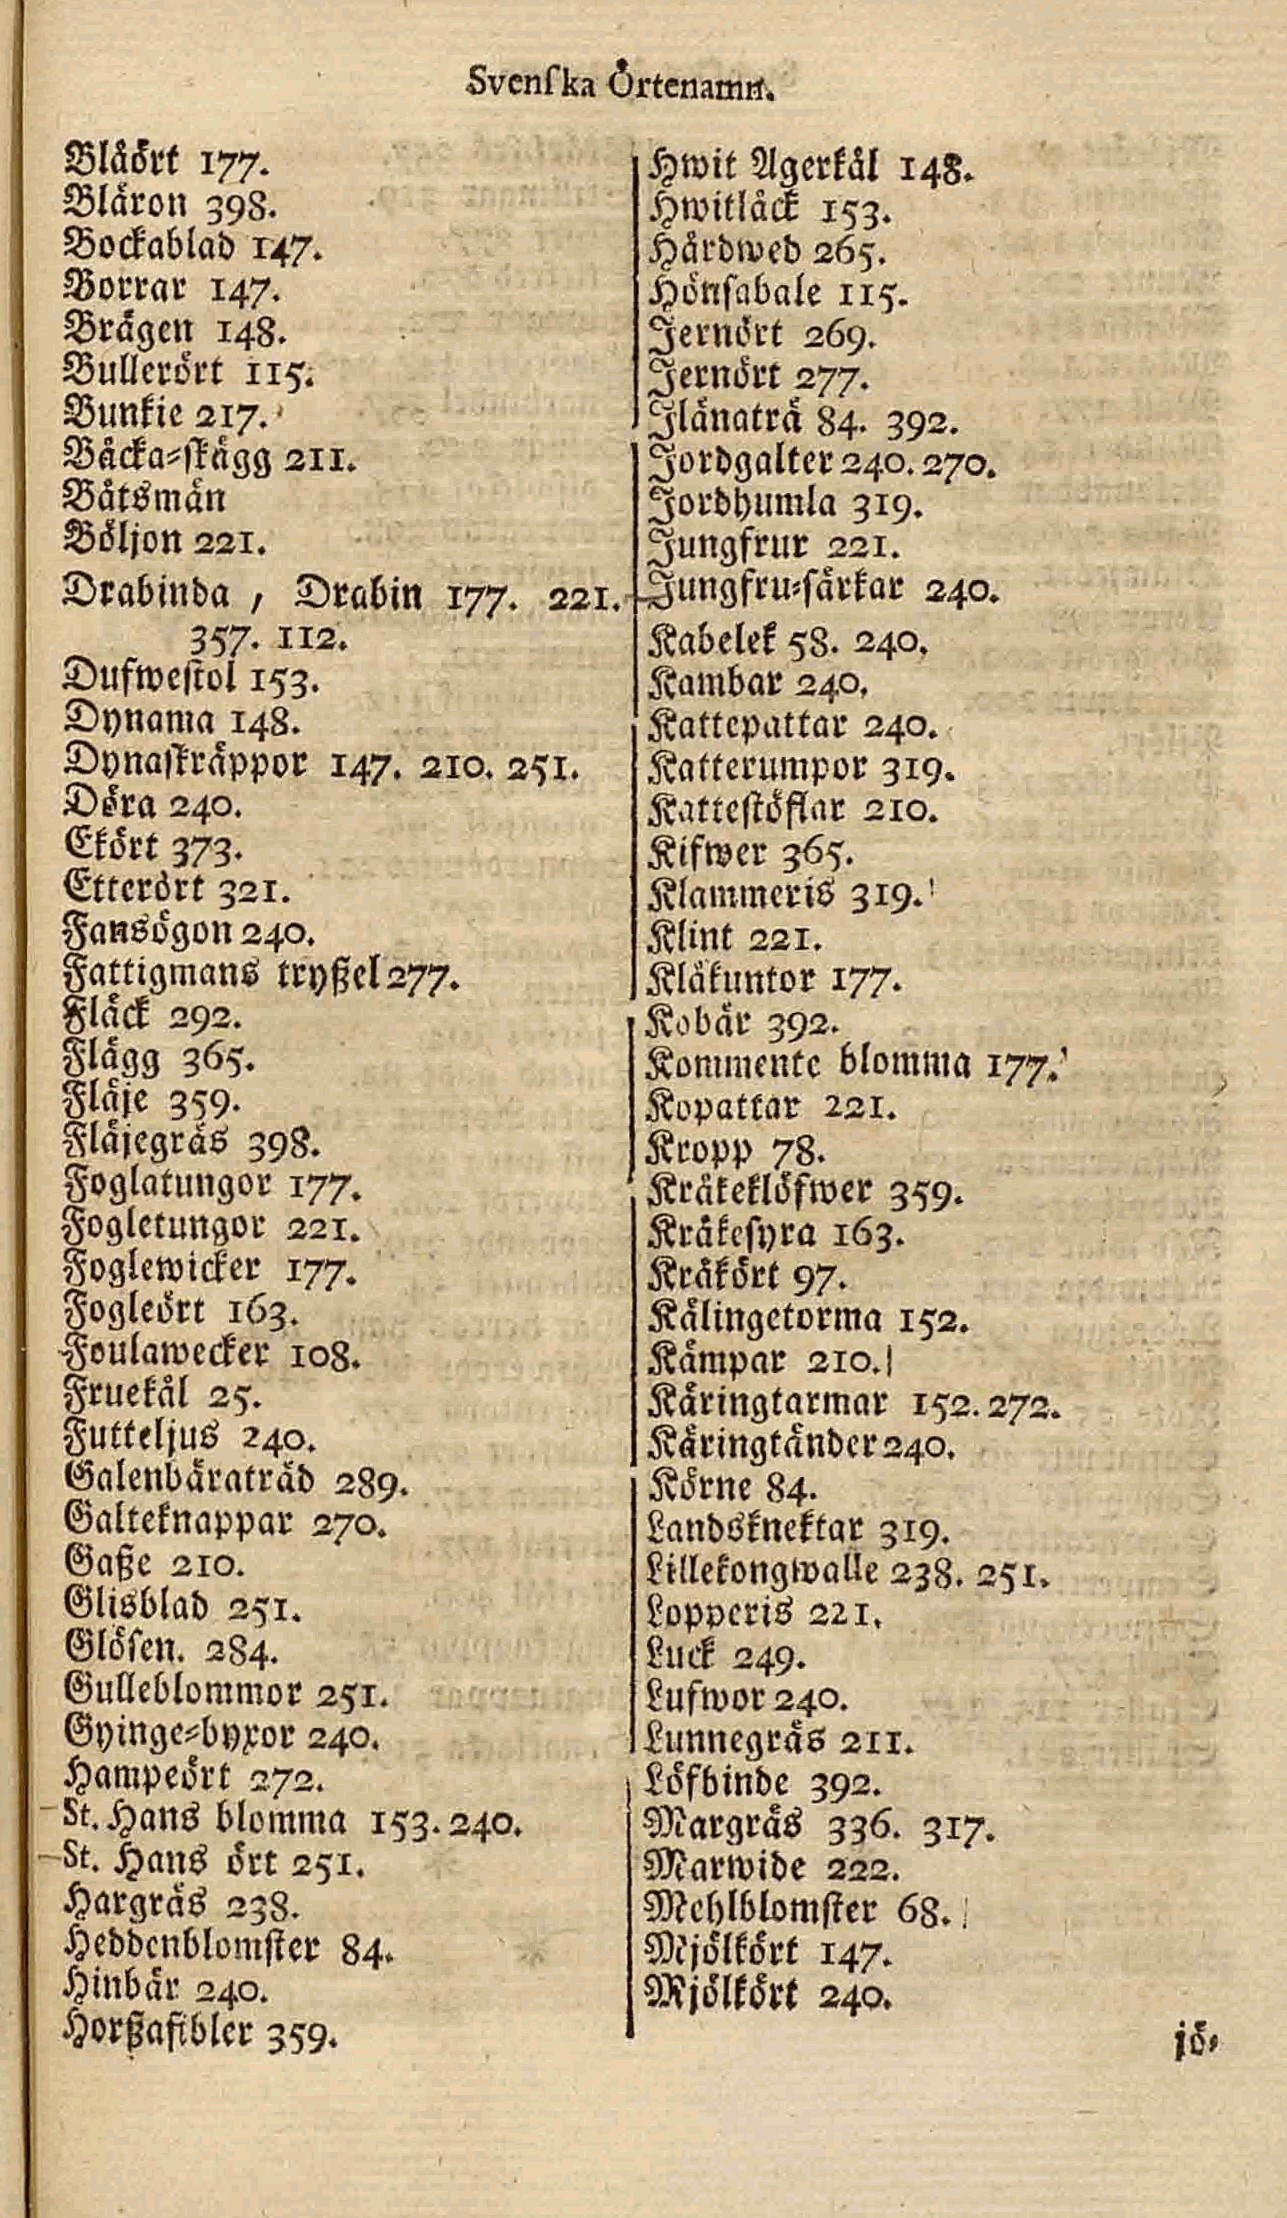 Svenska Örtenamn.
Blåört 177.
Bläron 398.
Bockablad 147.
Borrar 147.
Brägen 148.
Bullerört 115.
Bunkie 217.
Bäcka-skägg 211.
Båtsmän
Böljon 221.
Drabinda, Drabin 177. 221.
357. 112.
Dufwestol 153.
Dynama 148.
Dynaskräppor 147. 210. 251.
Döra 240.
Ekört 373.
Etterört 321.
Fansögon 240.
Fattigmans tryßel 277.
Fläck 292.
Flägg 365.
Fläje 359.
Fläjegräs 398.
Foglatungor 177.
Fogletungor 221.
Foglewicker 177.
Fogleört 163.
Foulawecker 108.
Fruekål 25.
Futteljus 240.
Galenbäraträd 289.
Galteknappar 270.
Gaße 210.
Glisblad 251.
Glösen. 284.
Gulleblommor 251.
Gyinge-byxor 240.
Hampeört 272.
St. Hans blomma 153. 240.
St. Hans ört 251.
Hargräs 238.
Heddenblomster 84.
Hinbär 240.
Horßafibler 359.
Hwit Agerkål 148.
Hwitläck 153.
Hårdwed 265.
Hönsabale 115.
Jernört 269.
Jernört 277.
Ilånaträ 84. 392.
Jordgalter 240. 270.
Jordhumla 319.
Jungfrur 221.
Jungfru-särkar 240.
Kabelek 58. 240.
Kambar 240.
Kattepattar 240.
Katterumpor 319.
Kattestöflar 210.
Kifwer 365.
Klammeris 319.
Klint 221.
Klåkuntor 177.
Kobär 392.
Kommente blomma 177.
Kopattar 221.
Kropp 78.
Kråkeklöfwer 359.
Kråkesyra 163.
Kråkört 97.
Kälingetorma 152.
Kämpar 210.
Käringtarmar 152. 272.
Käringtänder 240.
Körne 84.
Landsknektar 319.
Lillekongwalle 238. 251.
Lopperis 221.
Luck 249.
Lufwor 240.
Lunnegräs 211.
Löfbinde 392.
Margräs 336. 317.
Marwide 222.
Mehlblomster 68.
Mjölkört 147.
Mjölkört 240.
jö-